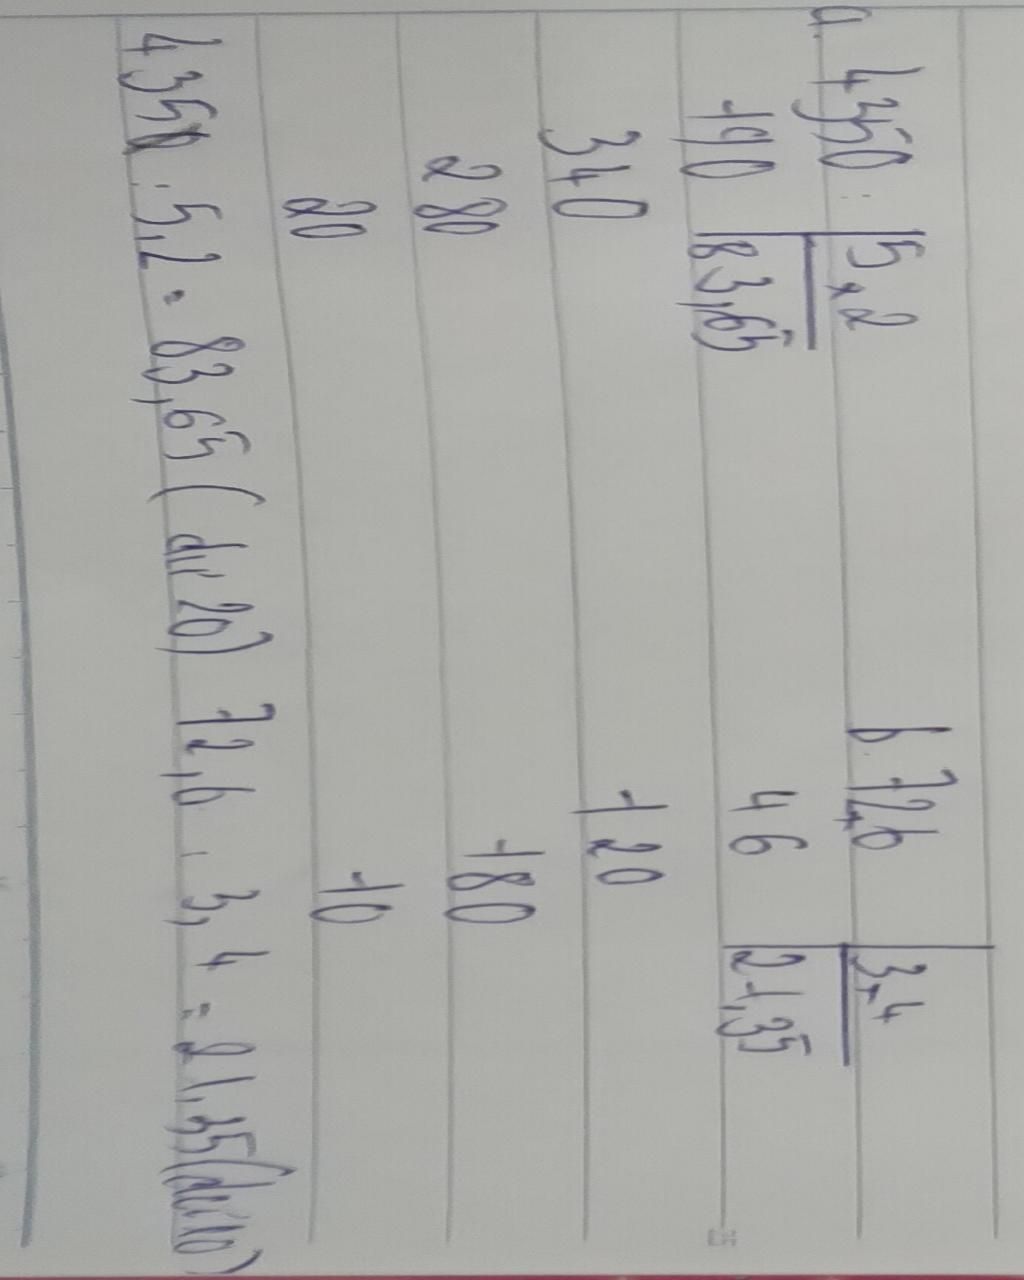 a. 4350 : 5,2 b. 72,6 3,4
190 83,65 46 21,35
340 120
280 180
20 10
435 : 5,2 = 83,65 (dư 20) 72,6 : 3,4 = 21,35 (dư 10)